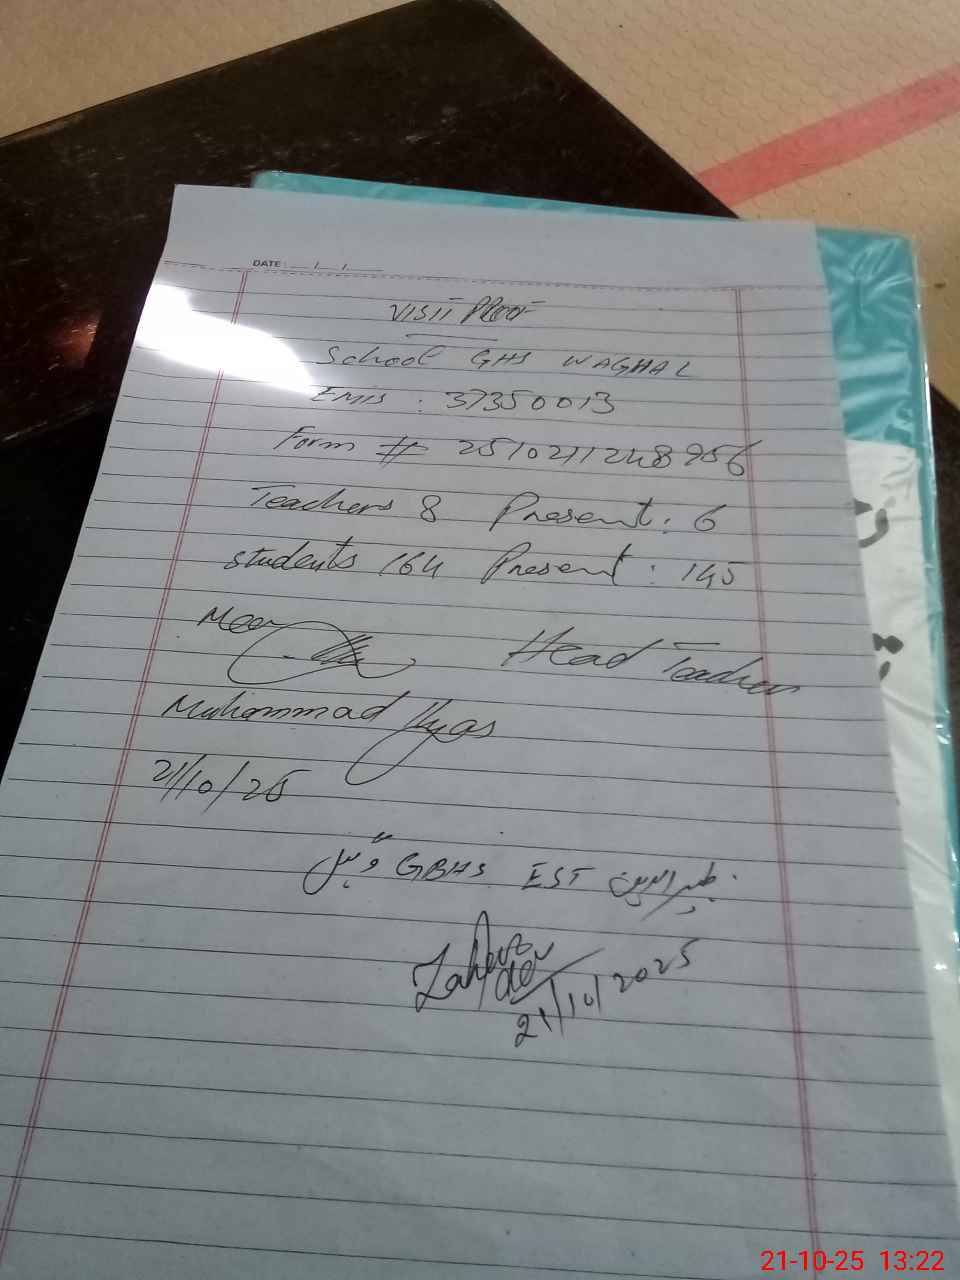 DATE: __/__/__
VISIT Proof
School GHS WAGHAL
EMIS : 37350013
Form # 2510211248956
Teachers 8 Present: 6
students 164 Present: 145
Meer
Head Teacher
Muhammad Ilyas
21/10/25
GBHS EST
21/10/2025
21-10-25 13:22